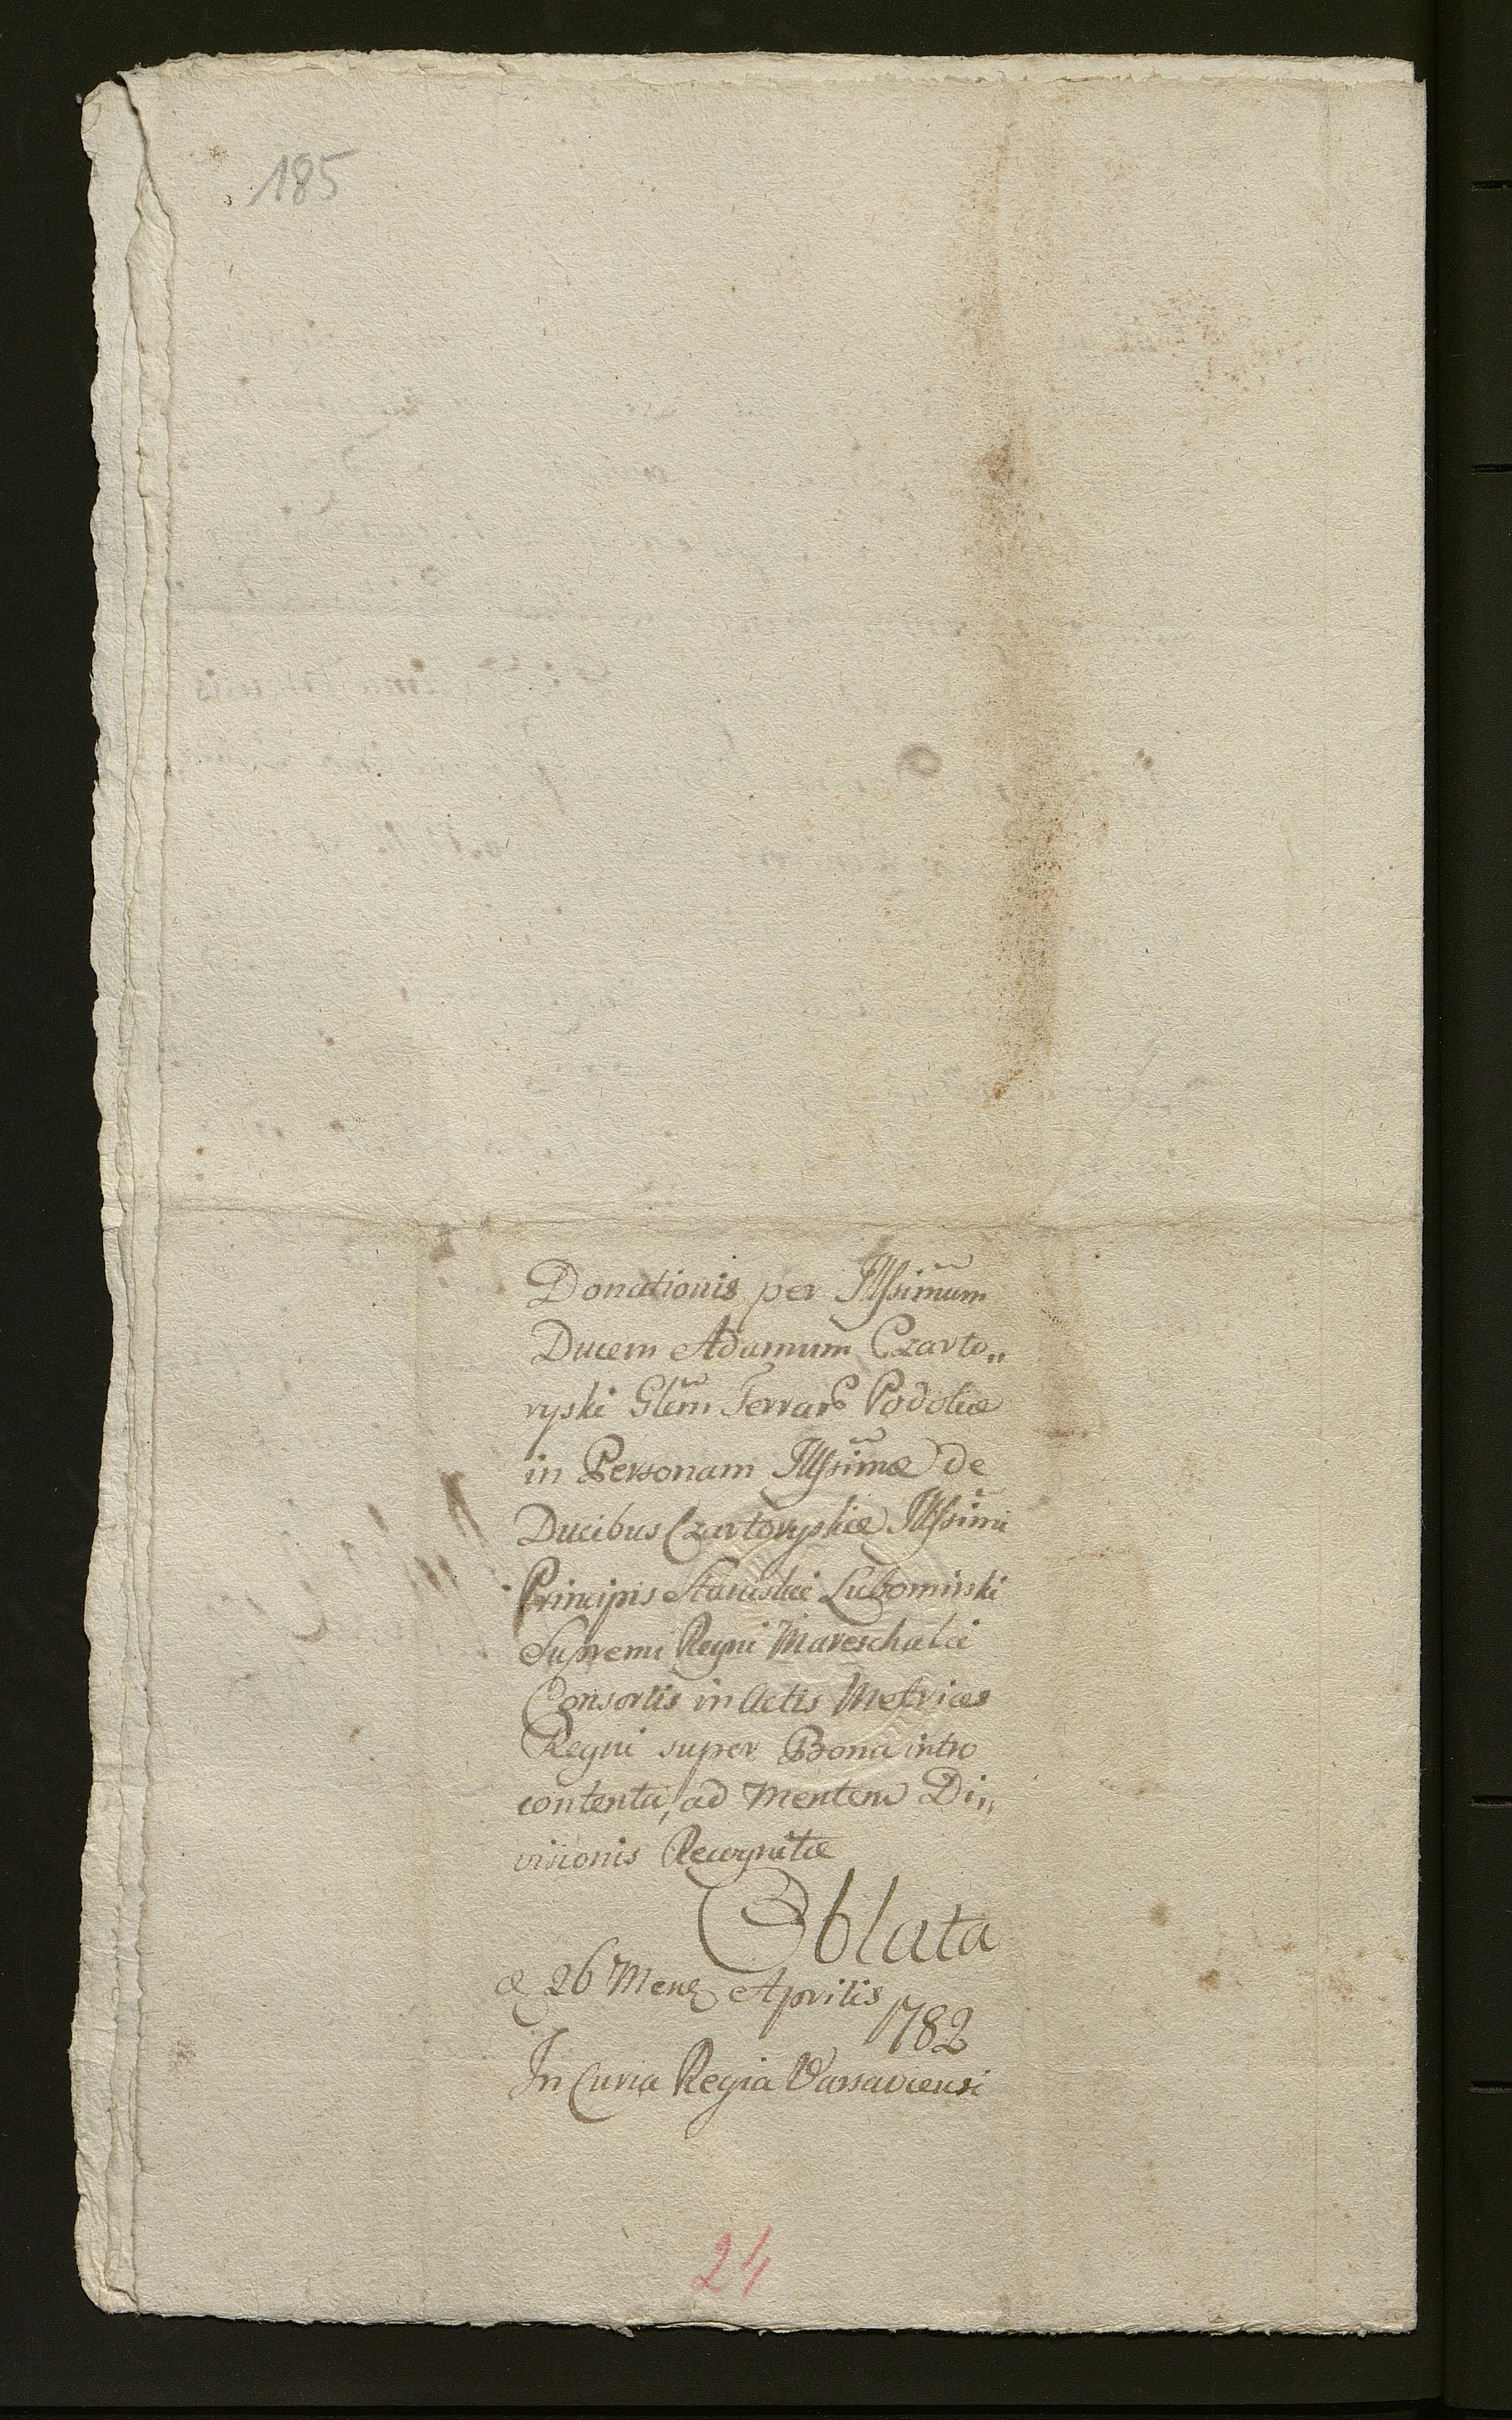 185
Donationis per Illssimum
Ducem Adamum Czarto„
ryski Glem Terrar Podoliæ
in Personam Illssimæ de
Ducibus Czartoryskie Illssimi
Principis Stanislai Lubomirski
Supremi Regni Mareschalci
Consortis in Actis Metrices
Regni super Bona intro
contenta, ad Mentem Di„
visionis Recognitæ
Oblata
26 Mens Aprilis
1782
In Curia Regia Varsaviensi
24